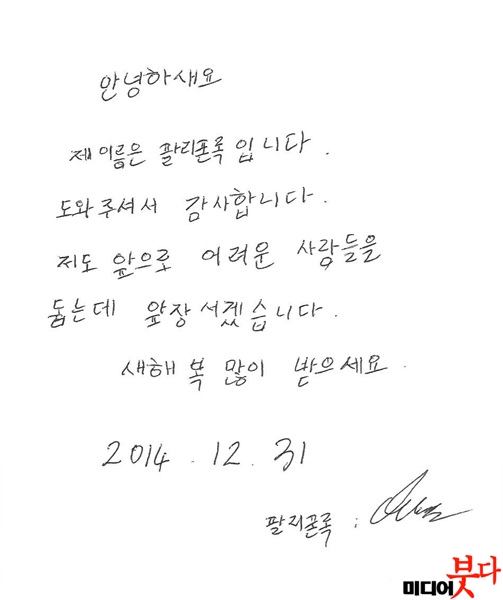 안녕하새요
제 이름은 팔리폰록입니다.
도와주셔서 감사합니다.
저도 앞으로 어려운 사람들을
돕는데 앞장 서겠습니다.
새해 복 많이 받으세요.
2014. 12. 31
팔리폰록 :
미디어붓다